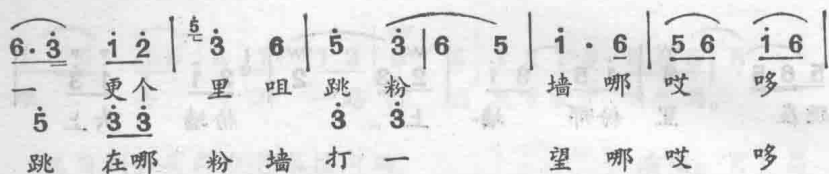 5 6· 3 1 2 | 3 6 | 5 3 | 6 5 | 1· 6 | 5 6 1 6 |
一 更 个 里 咀 跳 粉 墙 哪 哎 哆
5 3 3 3 3
跳 在 哪 粉 墙 打 一 望 哪 哎 哆